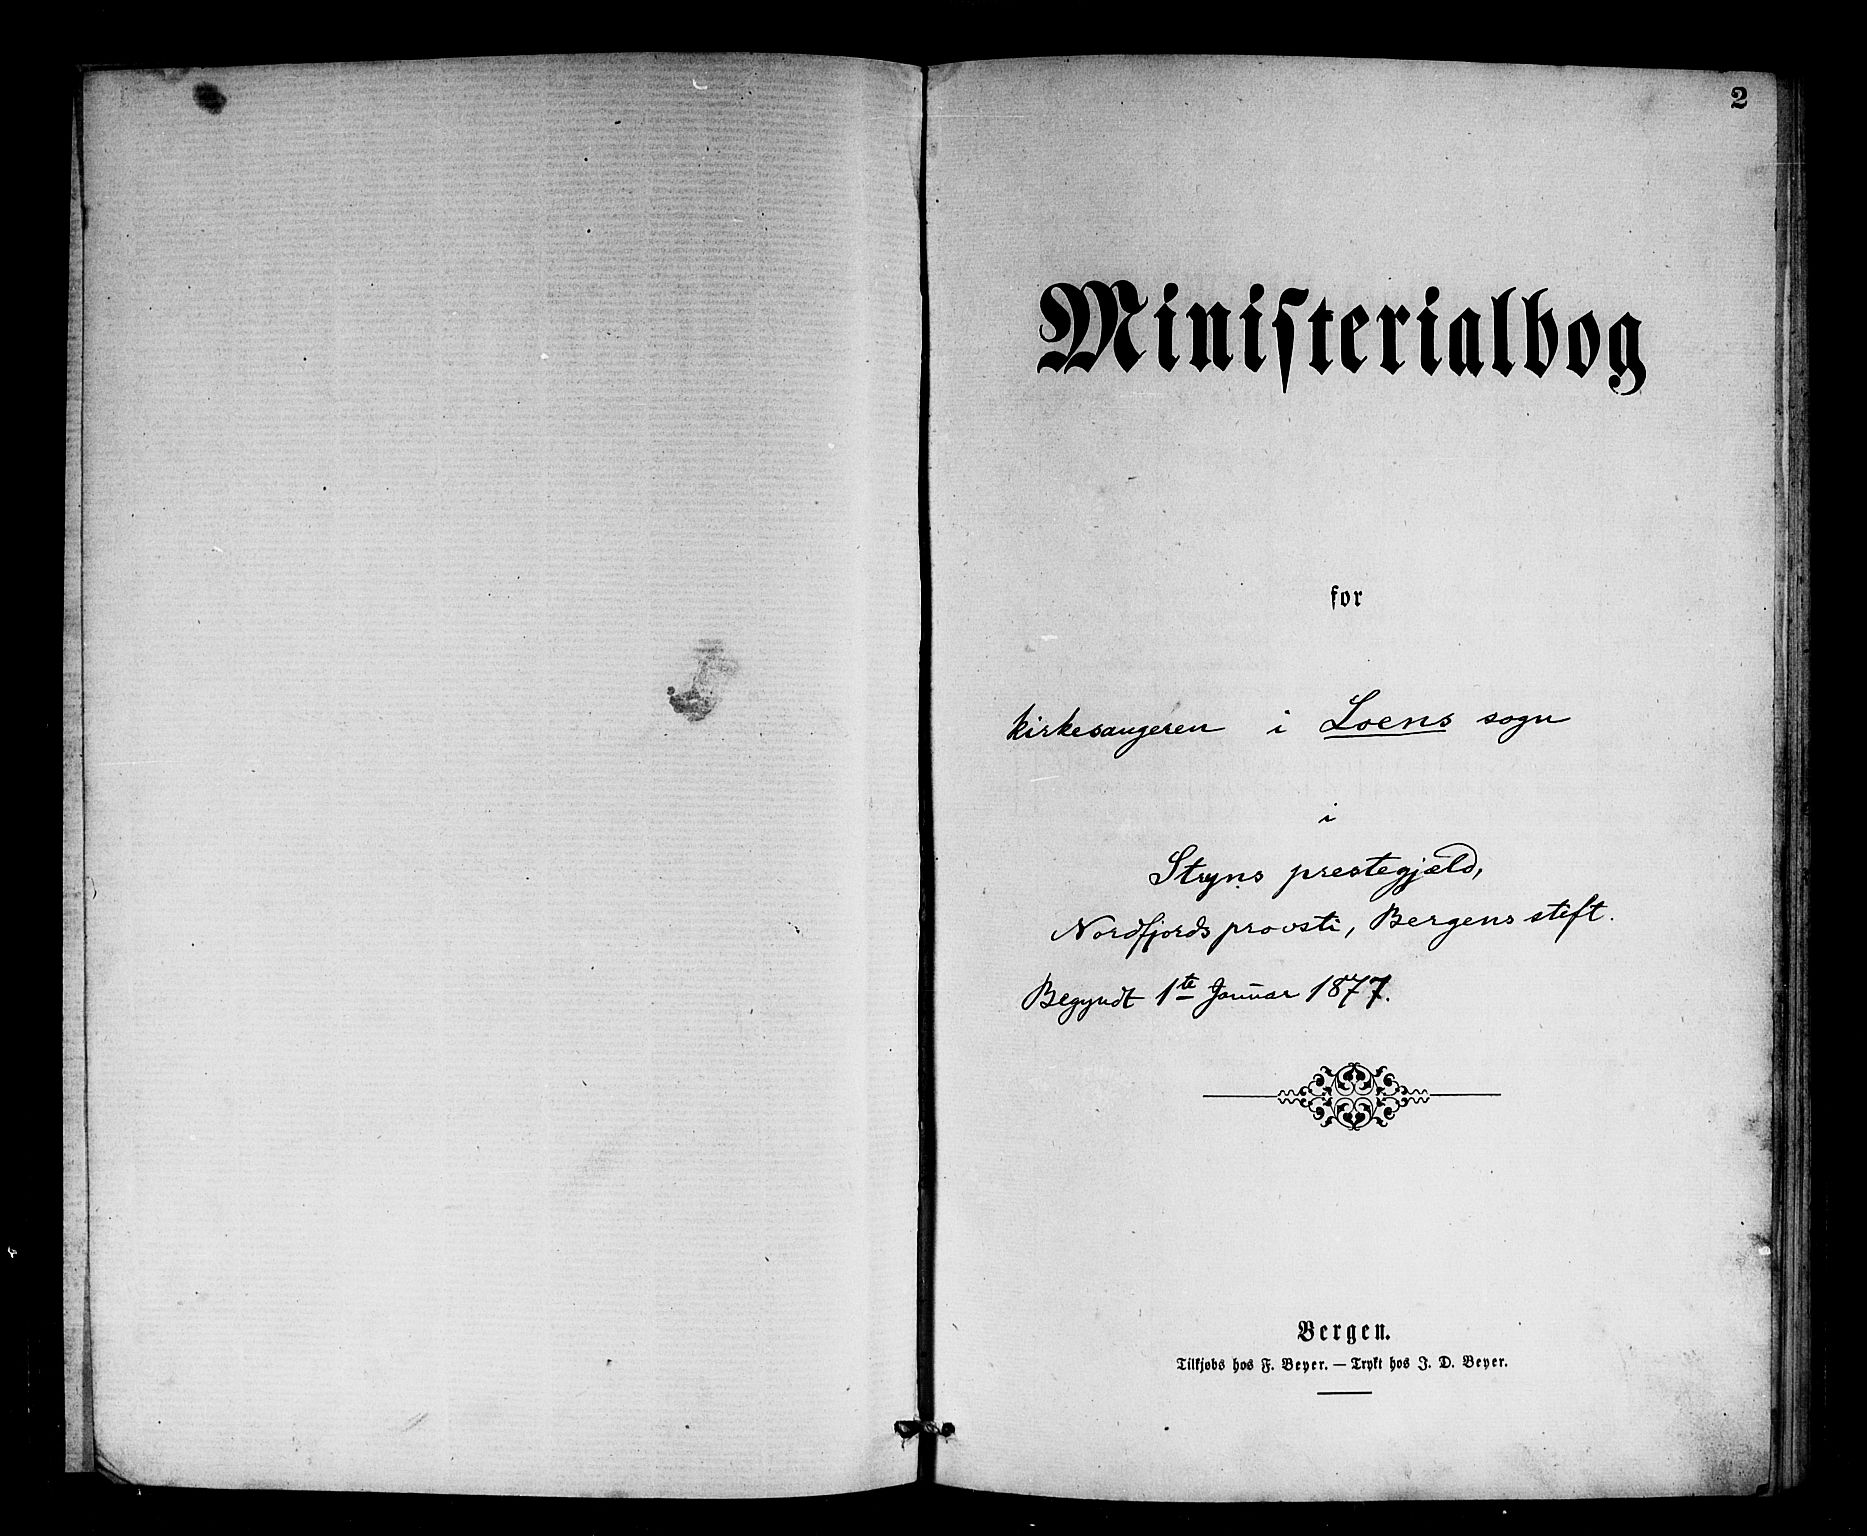 2
Ministerialbog
for
kirkesangeren i Loens sogn
i
Stryns prestegjæld,
Nordfjords provsti, Bergens stift.
Begyndt 1te Januar 1877.
Bergen.
Tilkjøbs hos F. Beyer. — Trykt hos J. D. Beyer.